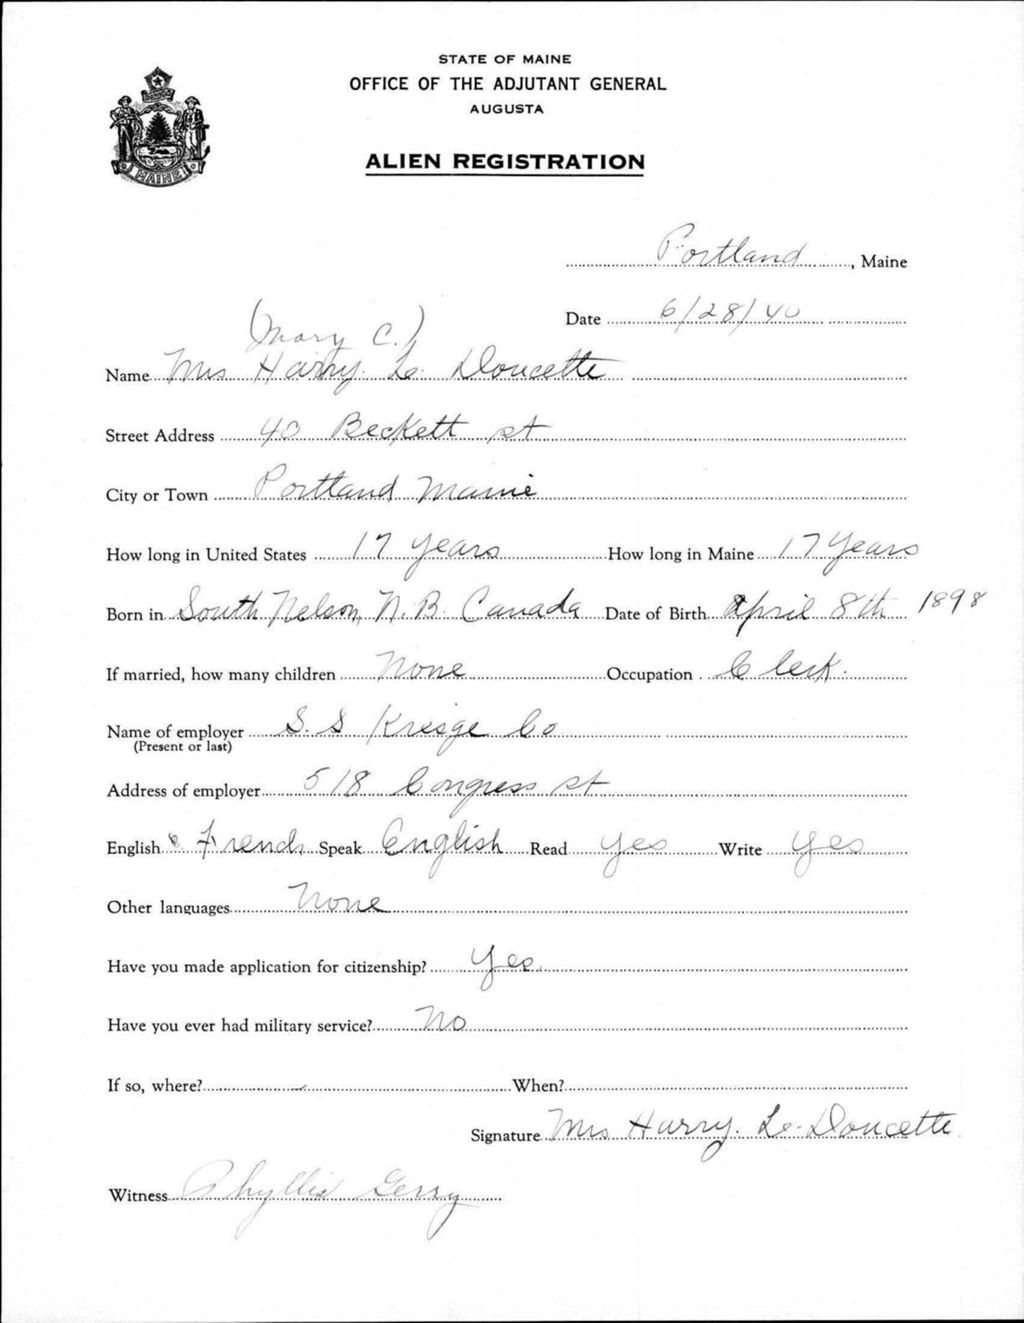 STATE OF MAINE
OFFICE OF THE ADJUTANT GENERAL
AUGUSTA
ALIEN REGISTRATION
MAINE
Portland, Maine
Date 6/28/40
(Mary C.)
Name Mrs Harry. Le. Doucette
Street Address 40 Beckett st
City or Town Portland Maine
How long in United States 17 years How long in Maine 17 Years
Born in South Nelson, N. B. Canada Date of Birth April 8th 1898
If married, how many children None Occupation Clerk.
Name of employer S. S Kresge Co
(Present or last)
Address of employer 518 Congress st
English & French Speak English Read yes Write yes
Other languages None
Have you made application for citizenship? Yes.
Have you ever had military service? No
If so, where? When?
Signature Mrs Harry. Le. Doucette
Witness Phyllis Gerry